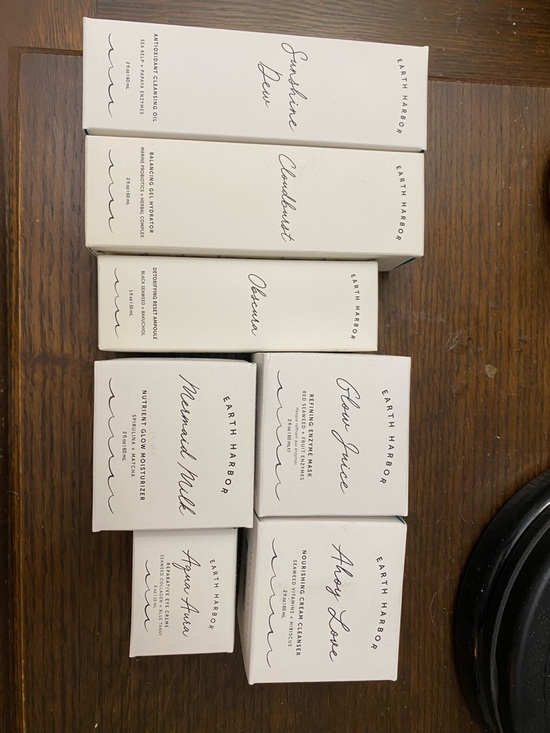 EARTH HARBOR
Sunshine
Dew
ANTIOXIDANT CLEANSING OIL
SEA KELP + PAPAYA ENZYMES
2 fl oz | 60 mL
EARTH HARBOR
Cloudburst
BALANCING GEL HYDRATOR
MARINE PROBIOTICS + HERBAL COMPLEX
2 fl oz | 60 mL
EARTH HARBOR
Obscura
DETOXIFYING RESET AMPOULE
BLACK SEAWEED + BAKUCHIOL
1 fl oz | 30 mL
EARTH HARBOR
Mermaid Milk
NUTRIENT GLOW MOISTURIZER
SPIRULINA + MATCHA
2 fl oz | 60 mL
EARTH HARBOR
Glow Juice
REFINING ENZYME MASK
RED SEAWEED + FRUIT ENZYMES
2 fl oz | 60 mL
EARTH HARBOR
Aqua Aura
REPARATIVE EYE CRÈME
SEAWEED COLLAGEN + BLUE TANSY
EARTH HARBOR
Ahoy Love
NOURISHING CREAM CLEANSER
SEAWEED VITAMINS + HIBISCUS
2 fl oz | 60 mL